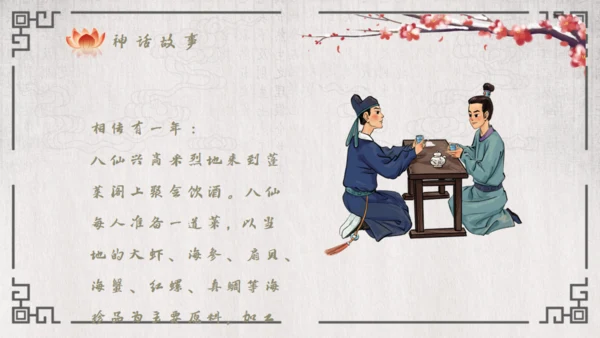 神话故事
相传有一年：
八仙兴高采烈地来到蓬
莱阁上聚会饮酒。八仙
每人准备一道菜，以当
地的大虾、海参、扇贝、
海蟹、红螺、真鲷等海
珍品为主要原料，加工